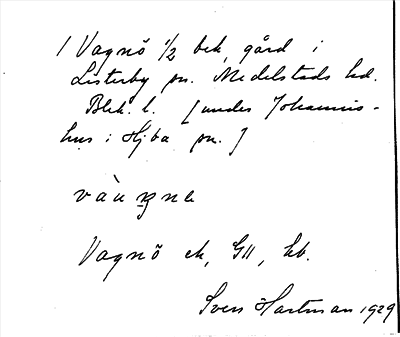 / Vagnö 1/2 bek, gård i
Listerby sn. Medelstads hd.
Blek. l. [under Johannis-
hus i Hjba sn.]
Vagnö ek, GII, kb.
Sven Hartman 1929